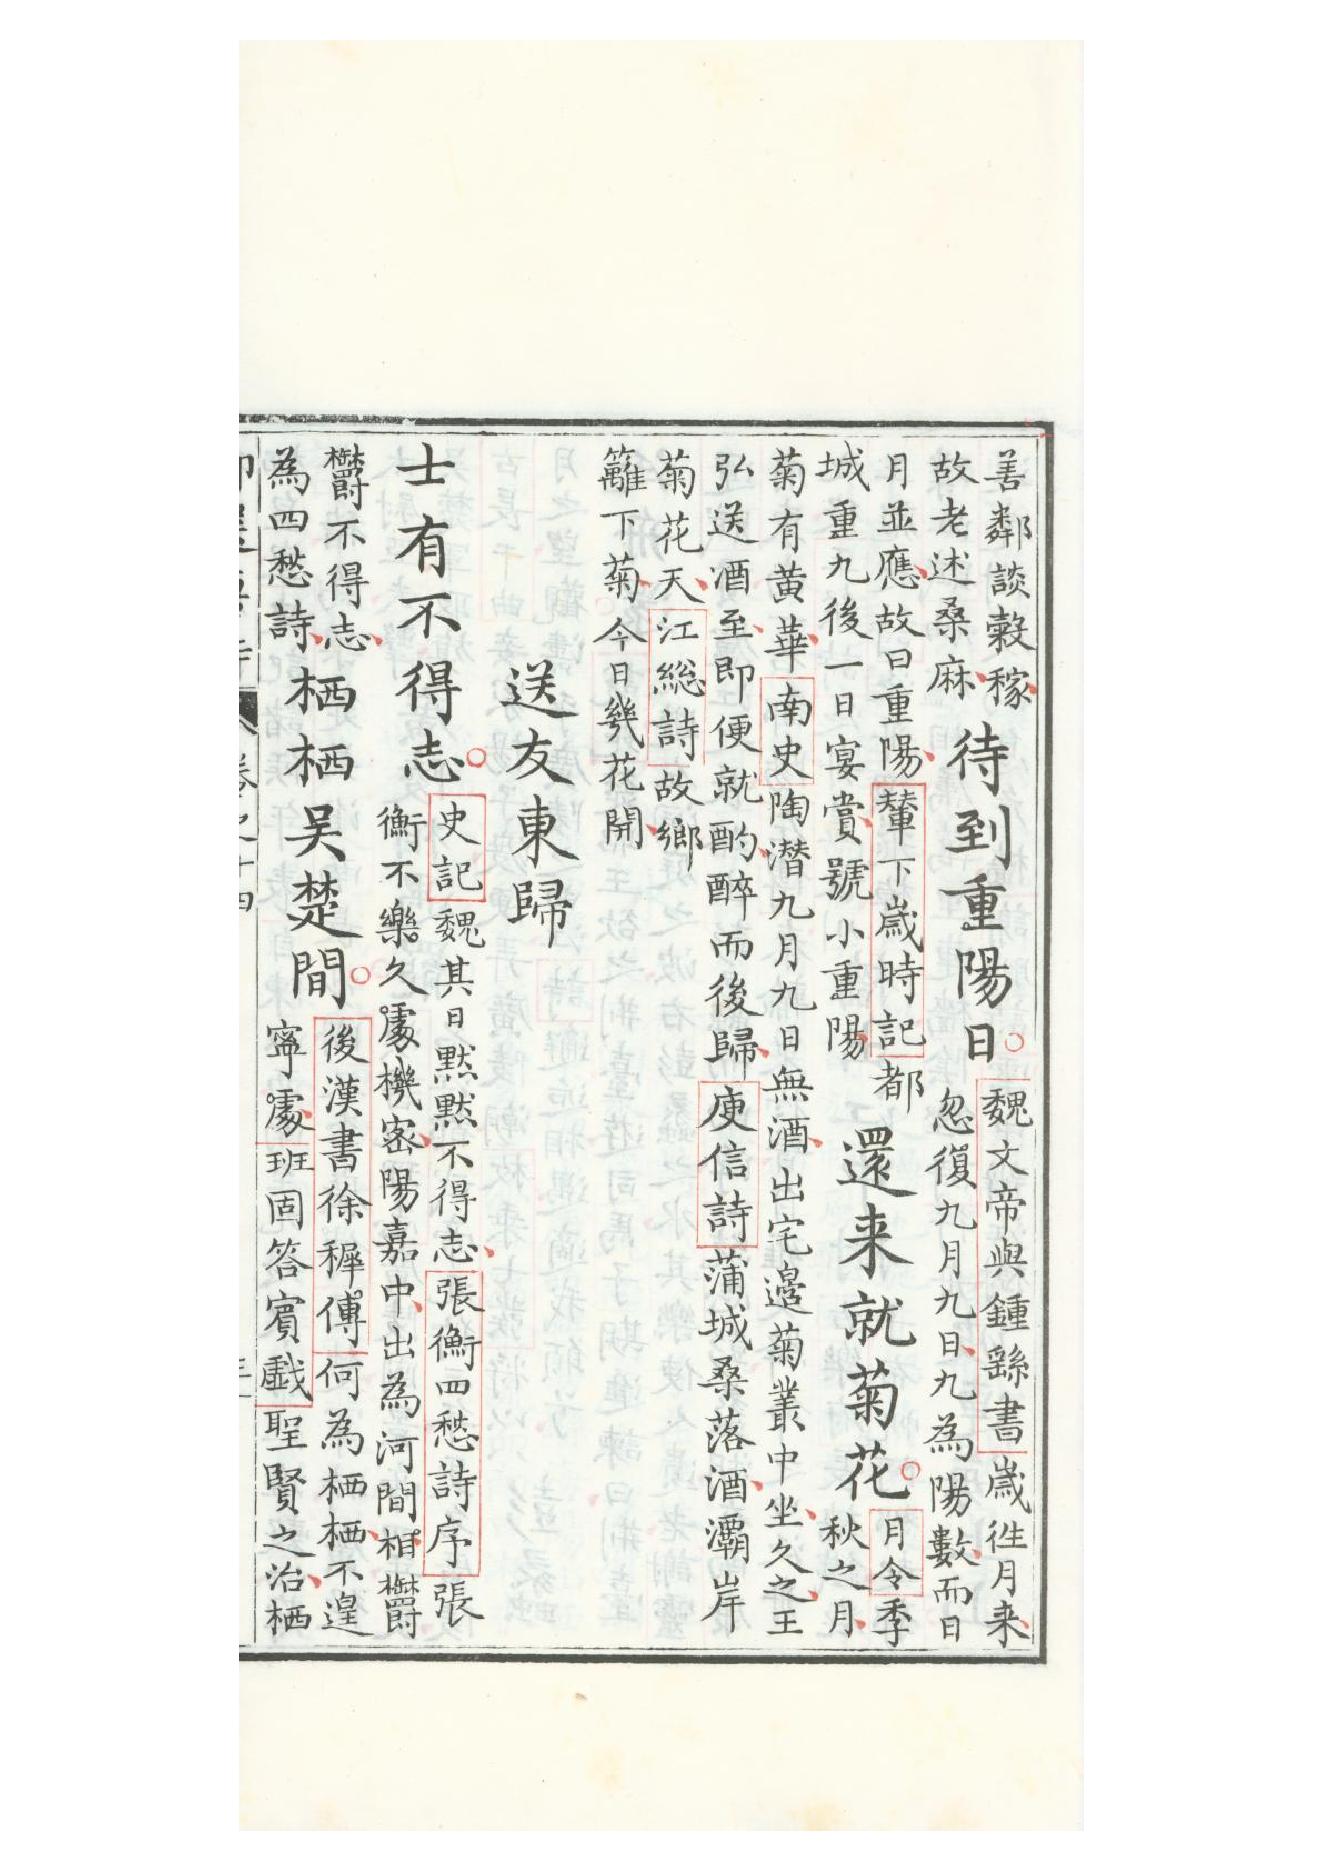 善鄰談穀稼
故老述桑麻
待到重陽日
魏文帝與鍾繇書歲徃月来
忽復九月九日九為陽數而日
月並應故曰重陽輦下歲時記都
城重九後一日宴賞號小重陽
還来就菊花
月令季
秋之月
菊有黃華南史陶潛九月九日無酒出宅邉菊叢中坐久之王
弘送酒至即便就酌醉而後歸庾信詩蒲城桑落酒灞岸
菊花天江総詩故鄉
籬下菊今日幾花開
送友東歸
士有不得志
史記魏其日黙黙不得志張衡四愁詩序張
衡不樂久處機宻陽嘉中出為河間相欝
欝不得志
為四愁詩
栖栖吴楚間
後漢書徐穉傅何為栖栖不遑
寧處班固答賔戯聖賢之治栖